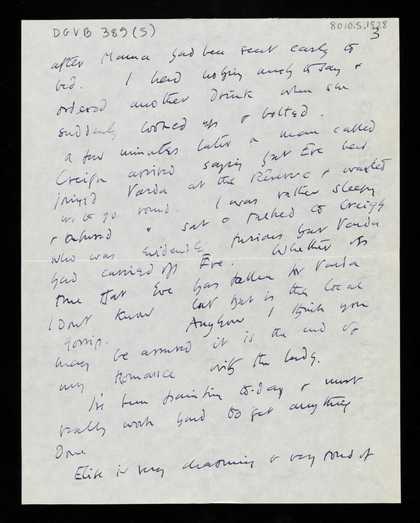 DGVB 389 (S)
3
after Mama had been sent early to
bed. I had nothing much to say &
ordered another Drink when she
suddenly looked up & bolted.
A few minutes later a man called
Creigh arrived saying that Eve had
joined Varda at the Reserve & wanted
us to go round. I was rather sleepy
& refused & sat & talked to Creigh
who was evidently furious that Varda
had carried off Eve. Whether its
true that Eve has fallen for Varda
I Dont know but that is the local
gossip. Anyhow I think you
may be assured it is the end of
my romance with the lady.
Ive been painting to-day & must
really work hard to get anything
Done
Elise is very charming & very fond of